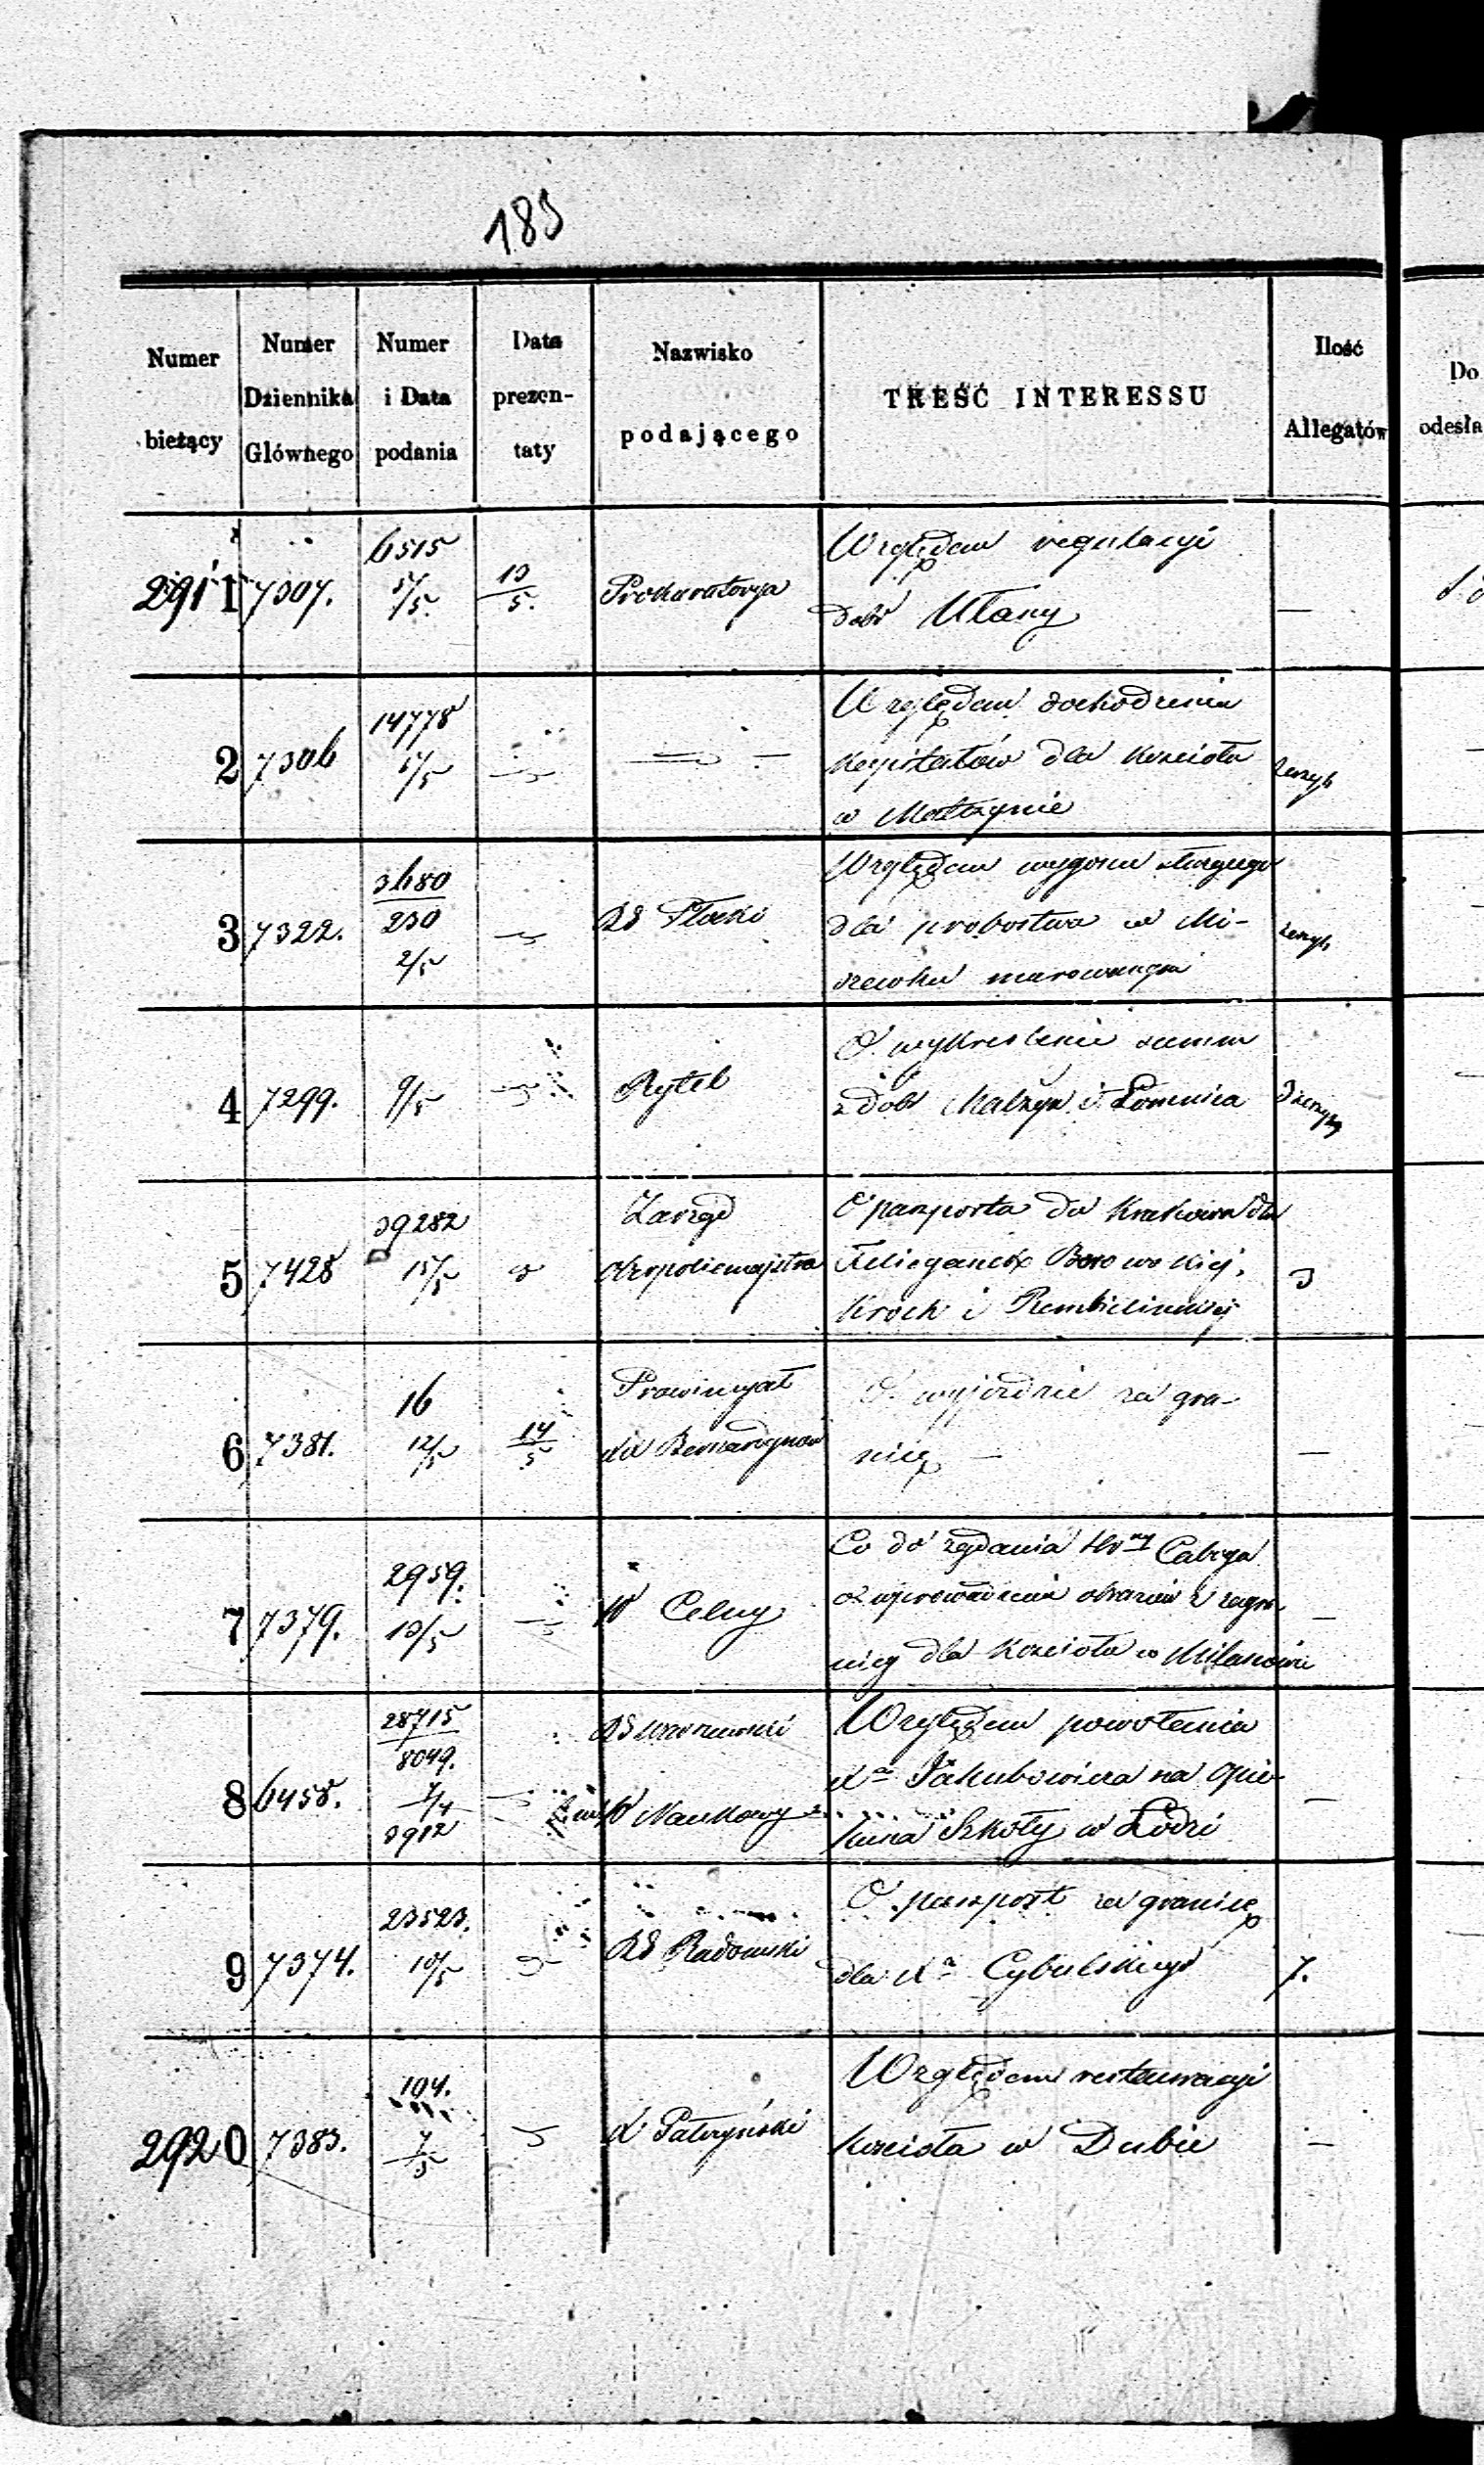 185
Numer bieżący | Numer Dziennika Głównego | Numer i Data podania | Data prezentaty | Nazwisko podającego | TREŚĆ INTERESSU | Ilość Allegatów | Do odesła
2911 | 7307. | 6515 5/5 | 13/5. | Prokuratorya | Względem regulacyi
dóbr Ułany | —
2 | 7306 | 14778 5/5 | — | Względem dochodzenia
kapitałów dla kościoła
w | zeszyt
3 | 7322. | 3680/230 2/5 | RG Płocki | Względem wygonu
dla probostwa w Mi-
szewku murowanym | zeszyt
4 | 7299. | 9/5 | Rytel | O wykreślenie summ
z dóbr Malżyn i Łomnica | 3 zeszyty
5 | 7428 | 39282 15/5 | Zarząd
Oberpolicmajstra | O paszporta do Krakowa dla
Felicyanek Borowskiej,
Kroch i Rembielińskiej | 3
6 | 7381. | 16 12/5 | 14/5 | Prowincyał
XX Bernardynów | O wyjezdzie za gra-
nicę — | —
7 | 7379. | 2959. 13/5 | W Celny | Co do żądania
o wprowadzenie obrazów z zagra-
nicy dla kościoła w Milanowie | —
8 | 6458. | 28715/8049. 7/4 3912 | RG Warszawski
Naukowy | Względem powołania
Xa Jakubowicza na opie-
kuna Szkoły w Łodzi | —
9 | 7374. | 23523. 10/5 | RG Radomski | O paszport za granicę
dla Xa Cybulskiego | 7.
2920 | 7383. | 104. 7/5 | X | Względem restauracyi
kościoła w Dubie | —